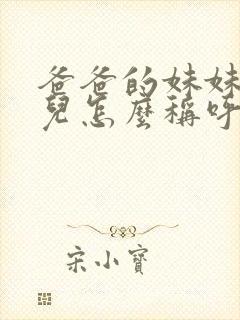 爸爸的妹妹
兒怎麼稱呼
宋小寶